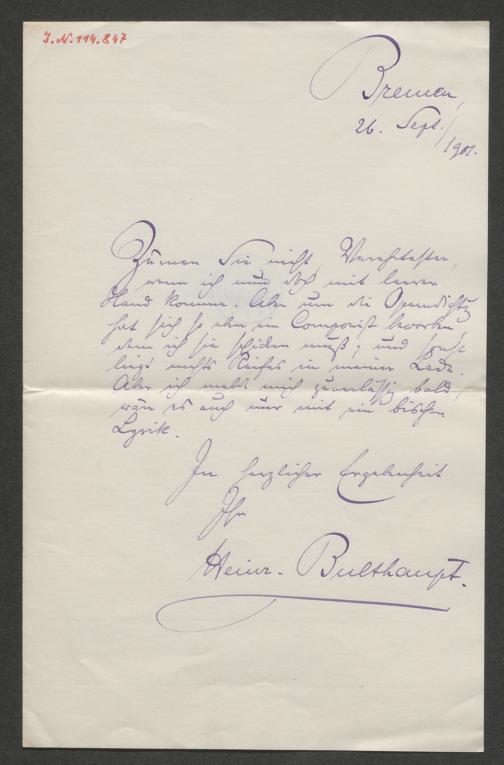 I.N. 114.847
Bremen,
26. Sept./
1901.
Zürnen Sie nicht, Verehrtester,
wenn ich nun doch mit leerer
Hand komme. Aber um die Operndichtung
hat sich so eben ein Componist beworben,
dem ich sie schicken muß; und sonst
liegt nichts Reifes in meiner Lade.
Aber ich melde mich zuverlässig bald,
wäre es auch nur mit ein bischen
Lyrik.
In herzlicher Ergebenheit
Ihr
Heinr. Bulthaupt.